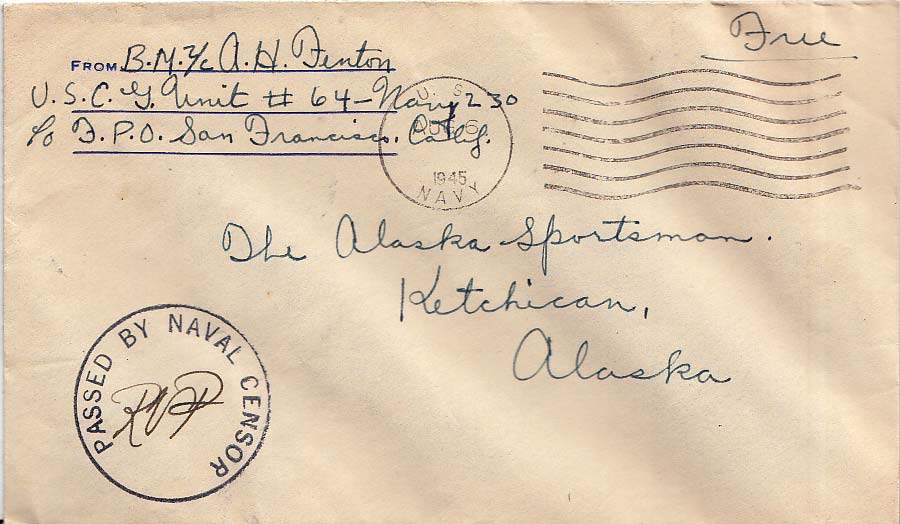 Free
FROM B.M. 2/c A. H. Fenton
U.S.C.G. Unit # 64 – Navy 230
c/o F.P.O. San Francisco. Calif.
U. S.
AUG 6
1945
NAVY
The Alaska Sportsman.
Ketchican,
Alaska
PASSED BY NAVAL CENSOR